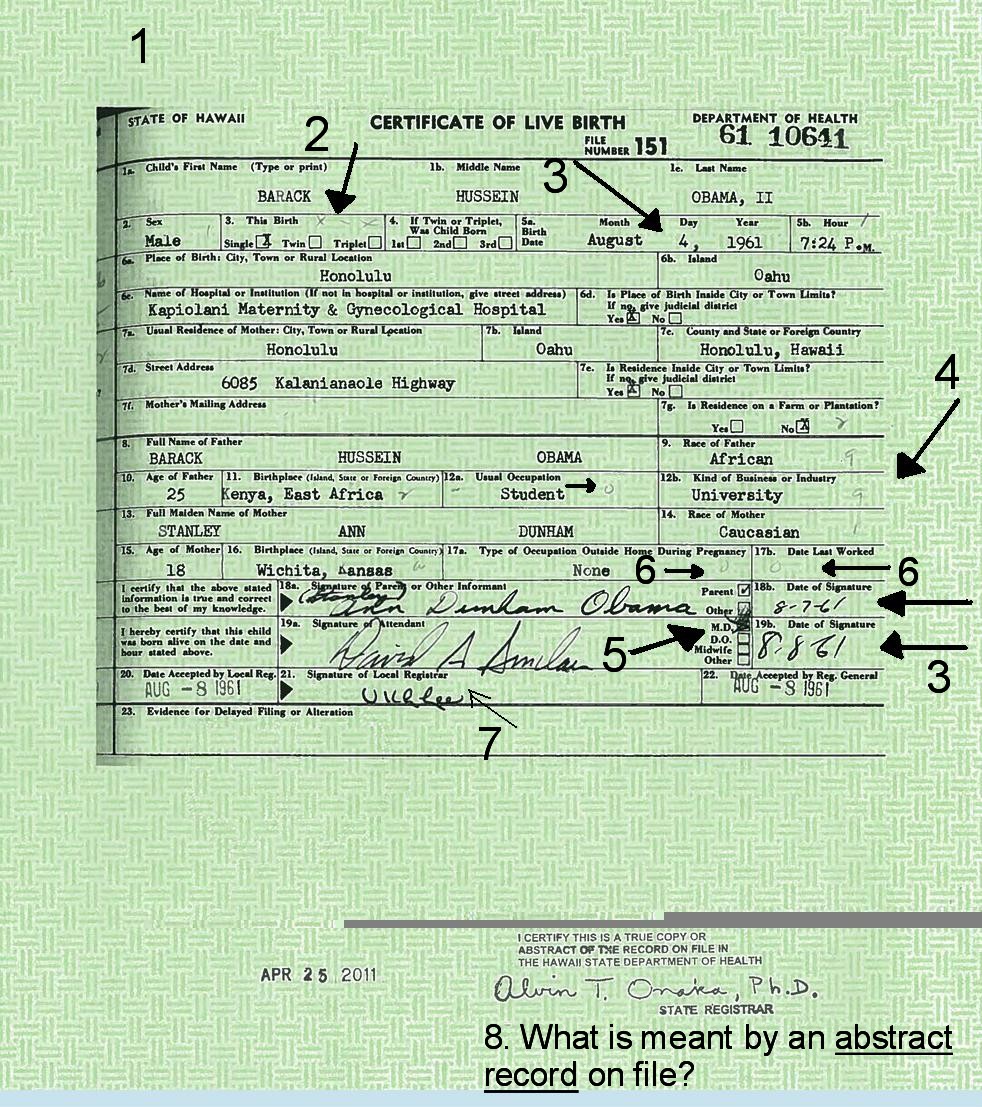 1
STATE OF HAWAII
CERTIFICATE OF LIVE BIRTH
DEPARTMENT OF HEALTH
FILE NUMBER 151
61 10641
2
3
1a. Child's First Name (Type or print)
1b. Middle Name
1c. Last Name
BARACK
HUSSEIN
OBAMA, II
2. Sex
Male
3. This Birth
Single X Twin Triplet
4. If Twin or Triplet,
Was Child Born
1st 2nd 3rd
5a. Birth Date
Month Day Year
August 4, 1961
5b. Hour
7:24 P.M.
6a. Place of Birth: City, Town or Rural Location
Honolulu
6b. Island
Oahu
6c. Name of Hospital or Institution (If not in hospital or institution, give street address)
Kapiolani Maternity & Gynecological Hospital
6d. Is Place of Birth Inside City or Town Limits?
If no, give judicial district
Yes X No
7a. Usual Residence of Mother: City, Town or Rural Location
Honolulu
7b. Island
Oahu
7c. County and State or Foreign Country
Honolulu, Hawaii
7d. Street Address
6085 Kalanianaole Highway
7e. Is Residence Inside City or Town Limits?
If no, give judicial district
Yes X No
4
7f. Mother's Mailing Address
7g. Is Residence on a Farm or Plantation?
Yes No X
8. Full Name of Father
BARACK HUSSEIN OBAMA
9. Race of Father
African 9
10. Age of Father
25
11. Birthplace (Island, State or Foreign Country)
Kenya, East Africa
12a. Usual Occupation
Student
12b. Kind of Business or Industry
University 9
13. Full Maiden Name of Mother
STANLEY ANN DUNHAM
14. Race of Mother
Caucasian
15. Age of Mother
18
16. Birthplace (Island, State or Foreign Country)
Wichita, Kansas
17a. Type of Occupation Outside Home During Pregnancy
None
17b. Date Last Worked
6
6
I certify that the above stated
information is true and correct
to the best of my knowledge.
18a. Signature of Parent or Other Informant
(Stanley) Ann Dunham Obama
Parent
Other
18b. Date of Signature
8-7-61
I hereby certify that this child
was born alive on the date and
hour stated above.
19a. Signature of Attendant
David A Sinclair
5
M.D.
D.O.
Midwife
Other
19b. Date of Signature
8-8-61
3
20. Date Accepted by Local Reg.
AUG -8 1961
21. Signature of Local Registrar
22. Date Accepted by Reg. General
AUG -8 1961
7
23. Evidence for Delayed Filing or Alteration
APR 25 2011
I CERTIFY THIS IS A TRUE COPY OR
ABSTRACT OF THE RECORD ON FILE IN
THE HAWAII STATE DEPARTMENT OF HEALTH
Alvin T. Onaka, Ph.D.
STATE REGISTRAR
8. What is meant by an abstract
record on file?